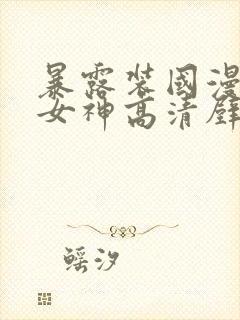 暴露装国漫
女神高清壁
鳐汐